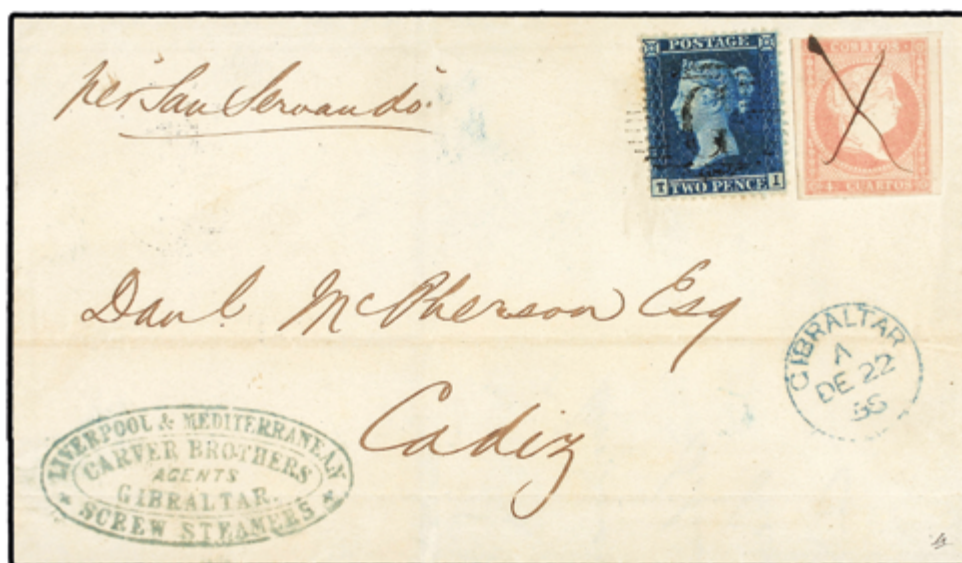 per "San Servando"
POSTAGE
T TWO PENCE I
CORREOS
4 CUARTOS
Danl. McPherson Esq
Cadiz
GIBRALTAR
A
DE 22
LIVERPOOL & MEDITERRANEAN
CARVER BROTHERS
AGENTS
GIBRALTAR.
SCREW STEAMERS